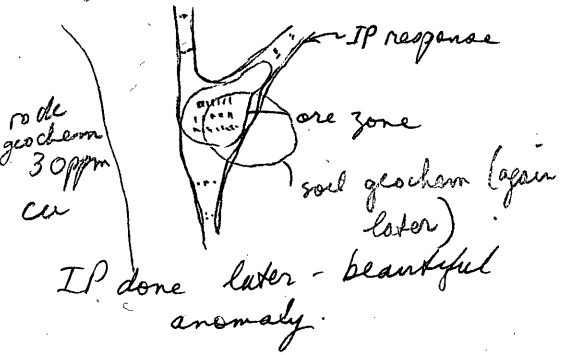 IP response
rock
geochem
30ppm
cu
ore zone
soil geochem (again
later)
IP done later - beautiful
anomaly.